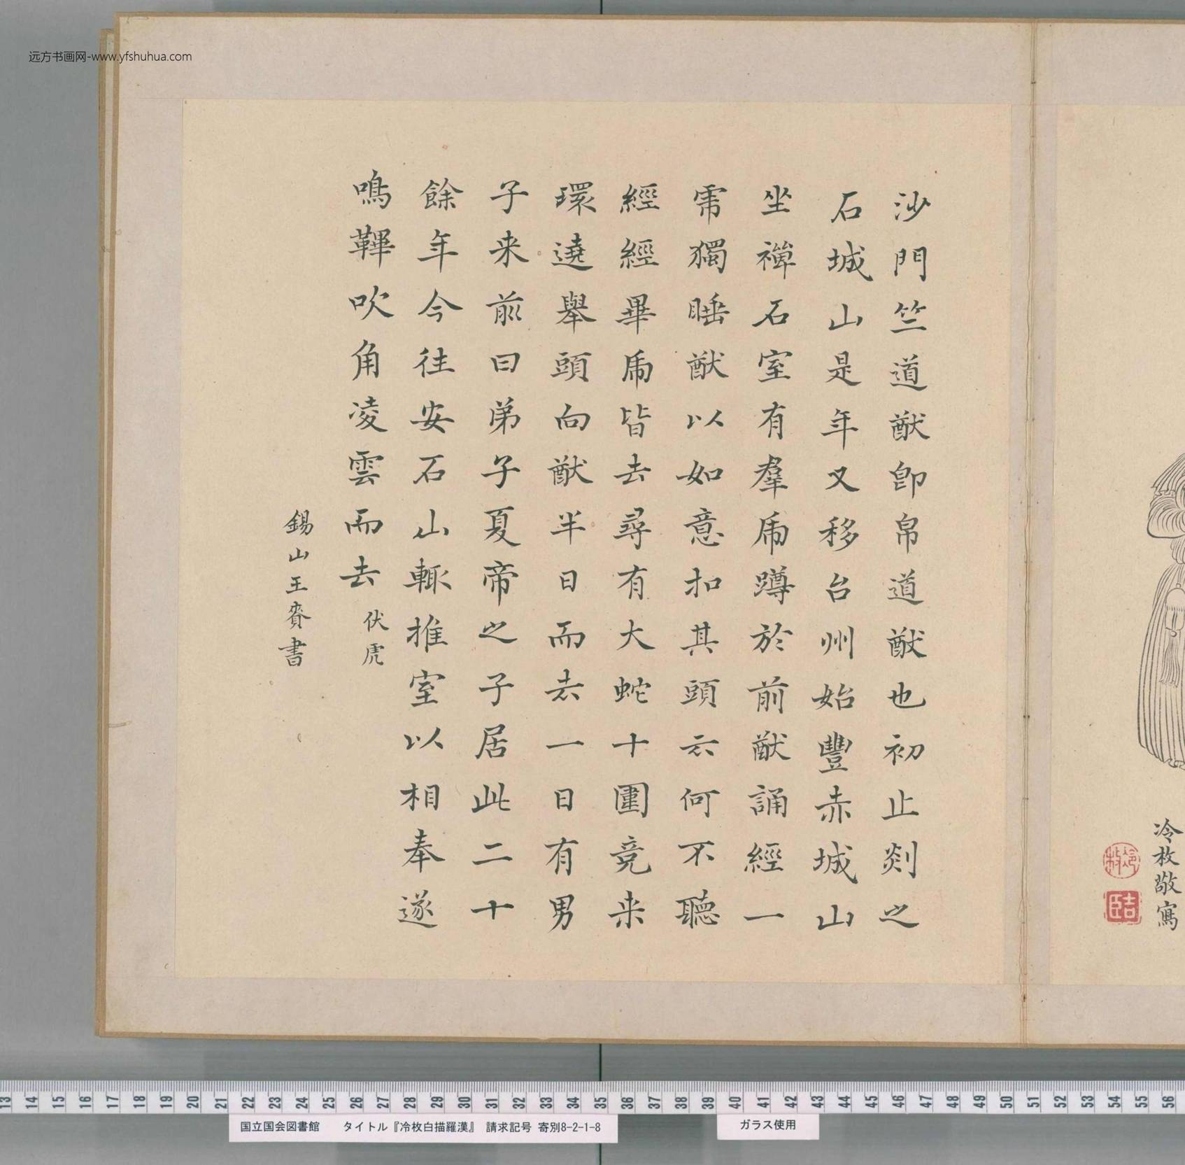 沙門竺道猷卽帛道猷也初止剡之
石城山是年又移台州始豐赤城山
坐禪石室有羣乕蹲於前猷誦經一
乕獨睡猷以如意扣其頭云何不聽
經經畢乕皆去尋有大蛇十圍竟来
環遶舉頭向猷半日而去一日有男
子来前曰弟子夏帝之子居此二十
餘年今往安石山輙推室以相奉遂
鳴鞞吹角凌雲而去
伏虎
錫山王賚書
冷枚敬寫
冷枚
吉臣
远方书画网-www.yfshuhua.com
13 14 15 16 17 18 19 20 21 22 23 24 25 26 27 28 29 30 31 32 33 34 35 36 37 38 39 40 41 42 43 44 45 46 47 48 49 50 51 52 53 54 55 56
国立国会図書館 タイトル『冷枚白描羅漢』 請求記号 寄別8-2-1-8
ガラス使用